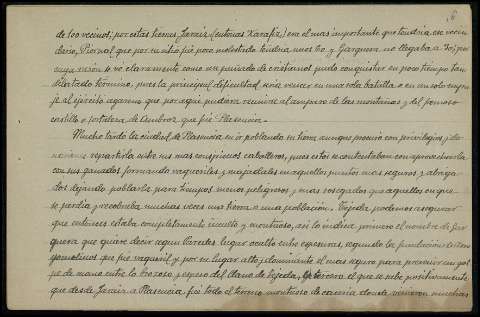 de 100 vecinos; por estas fechas Jaraiz (entonces Xarafiz) era el mas importante que tendría ese vecin
dario, Piornal que por su sitio fué poco molestado tendría unos 60 y Garguera no llegaba a 50; por
cuya razón se vé claramente como un puñado de cristianos pudo conquistar en poco tiempo tan
dilatado término, pues la principal dificultad sería vencer en una sola batalla o en un solo empu
je al ejército agareno que por aquí pudiera reunirse al amparo de las montañas y del famoso
castillo o fortaleza de Ambroz que fué Plasencia.-
Mucho tardó la ciudad de Plasencia en ir poblando su tierra aunque procuró con privilegios y do
naciones repartirla entre sus mas conspicuos caballeros, pues estos se contentaban con aprovecharla
con sus ganados formando vaqueriles y majadales en aquellos puntos mas seguros y abriga
dos dejando poblarla para tiempos menos peligrosos y mas sosegados que aquellos en que
se perdía y recobraba muchas veces una tierra o una población. Tejeda podemos asegurar
que entonces estaba completamente inculto y montuoso, así lo indica, primero el nombre de Gar
guera que quiere decir segun Paredes lugar oculto entre espesuras, segundo la fundación
que fué vaqueril y por su lugar alto y dominante el mas seguro para prevenir un gol
pe de mano entre lo frondoso y espeso del llano de Tejeda, y tercero el que se sabe positivamente
que desde Jaraiz a Plasencia, fué todo el terreno montuoso de cacería donde vinieron muchas